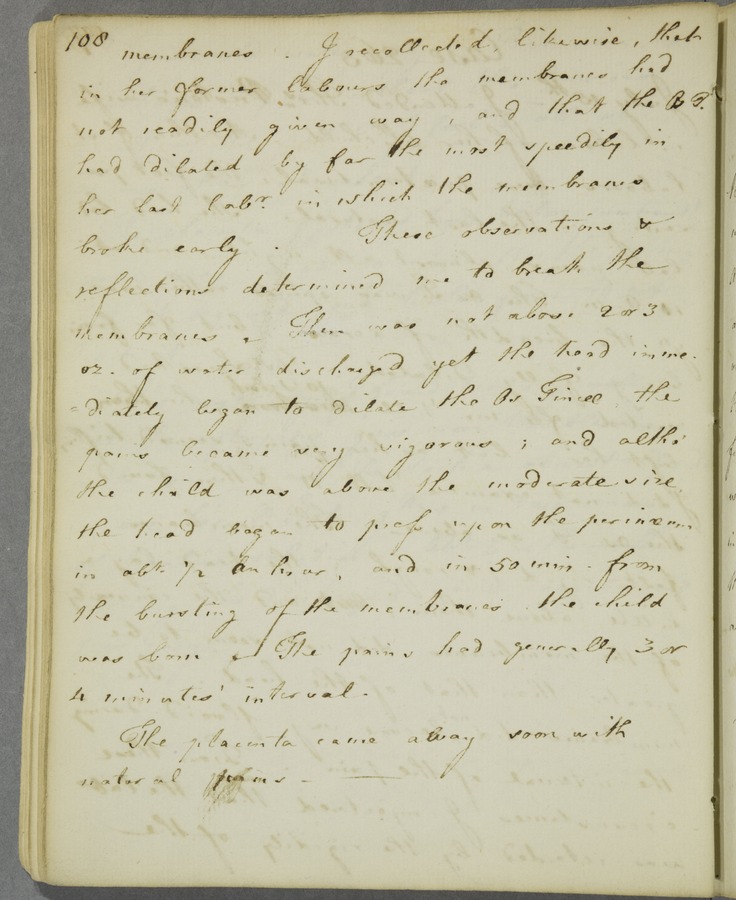 108
membranes . I recollected, likewise, that
in her former labours the membranes had
not readily given way, and that the Os T.
had dilated by far the most speedily in
her last labr. in which the membranes
broke early . These observations &
reflections determined me to break the
membranes - There was not above 2 or 3
oz. of water discharged yet the head imme-
=diately began to dilate the Os Tincæ the
pains became very vigorous ; and altho'
the child was above the moderate size
the head began to press upon the perinæum
in abt. 1/2 an hour, and in 50 min. from
the bursting of the membranes the child
was born - The pains had generally 3 or
4 minutes' interval -
The placenta came away soon with
natural pains -